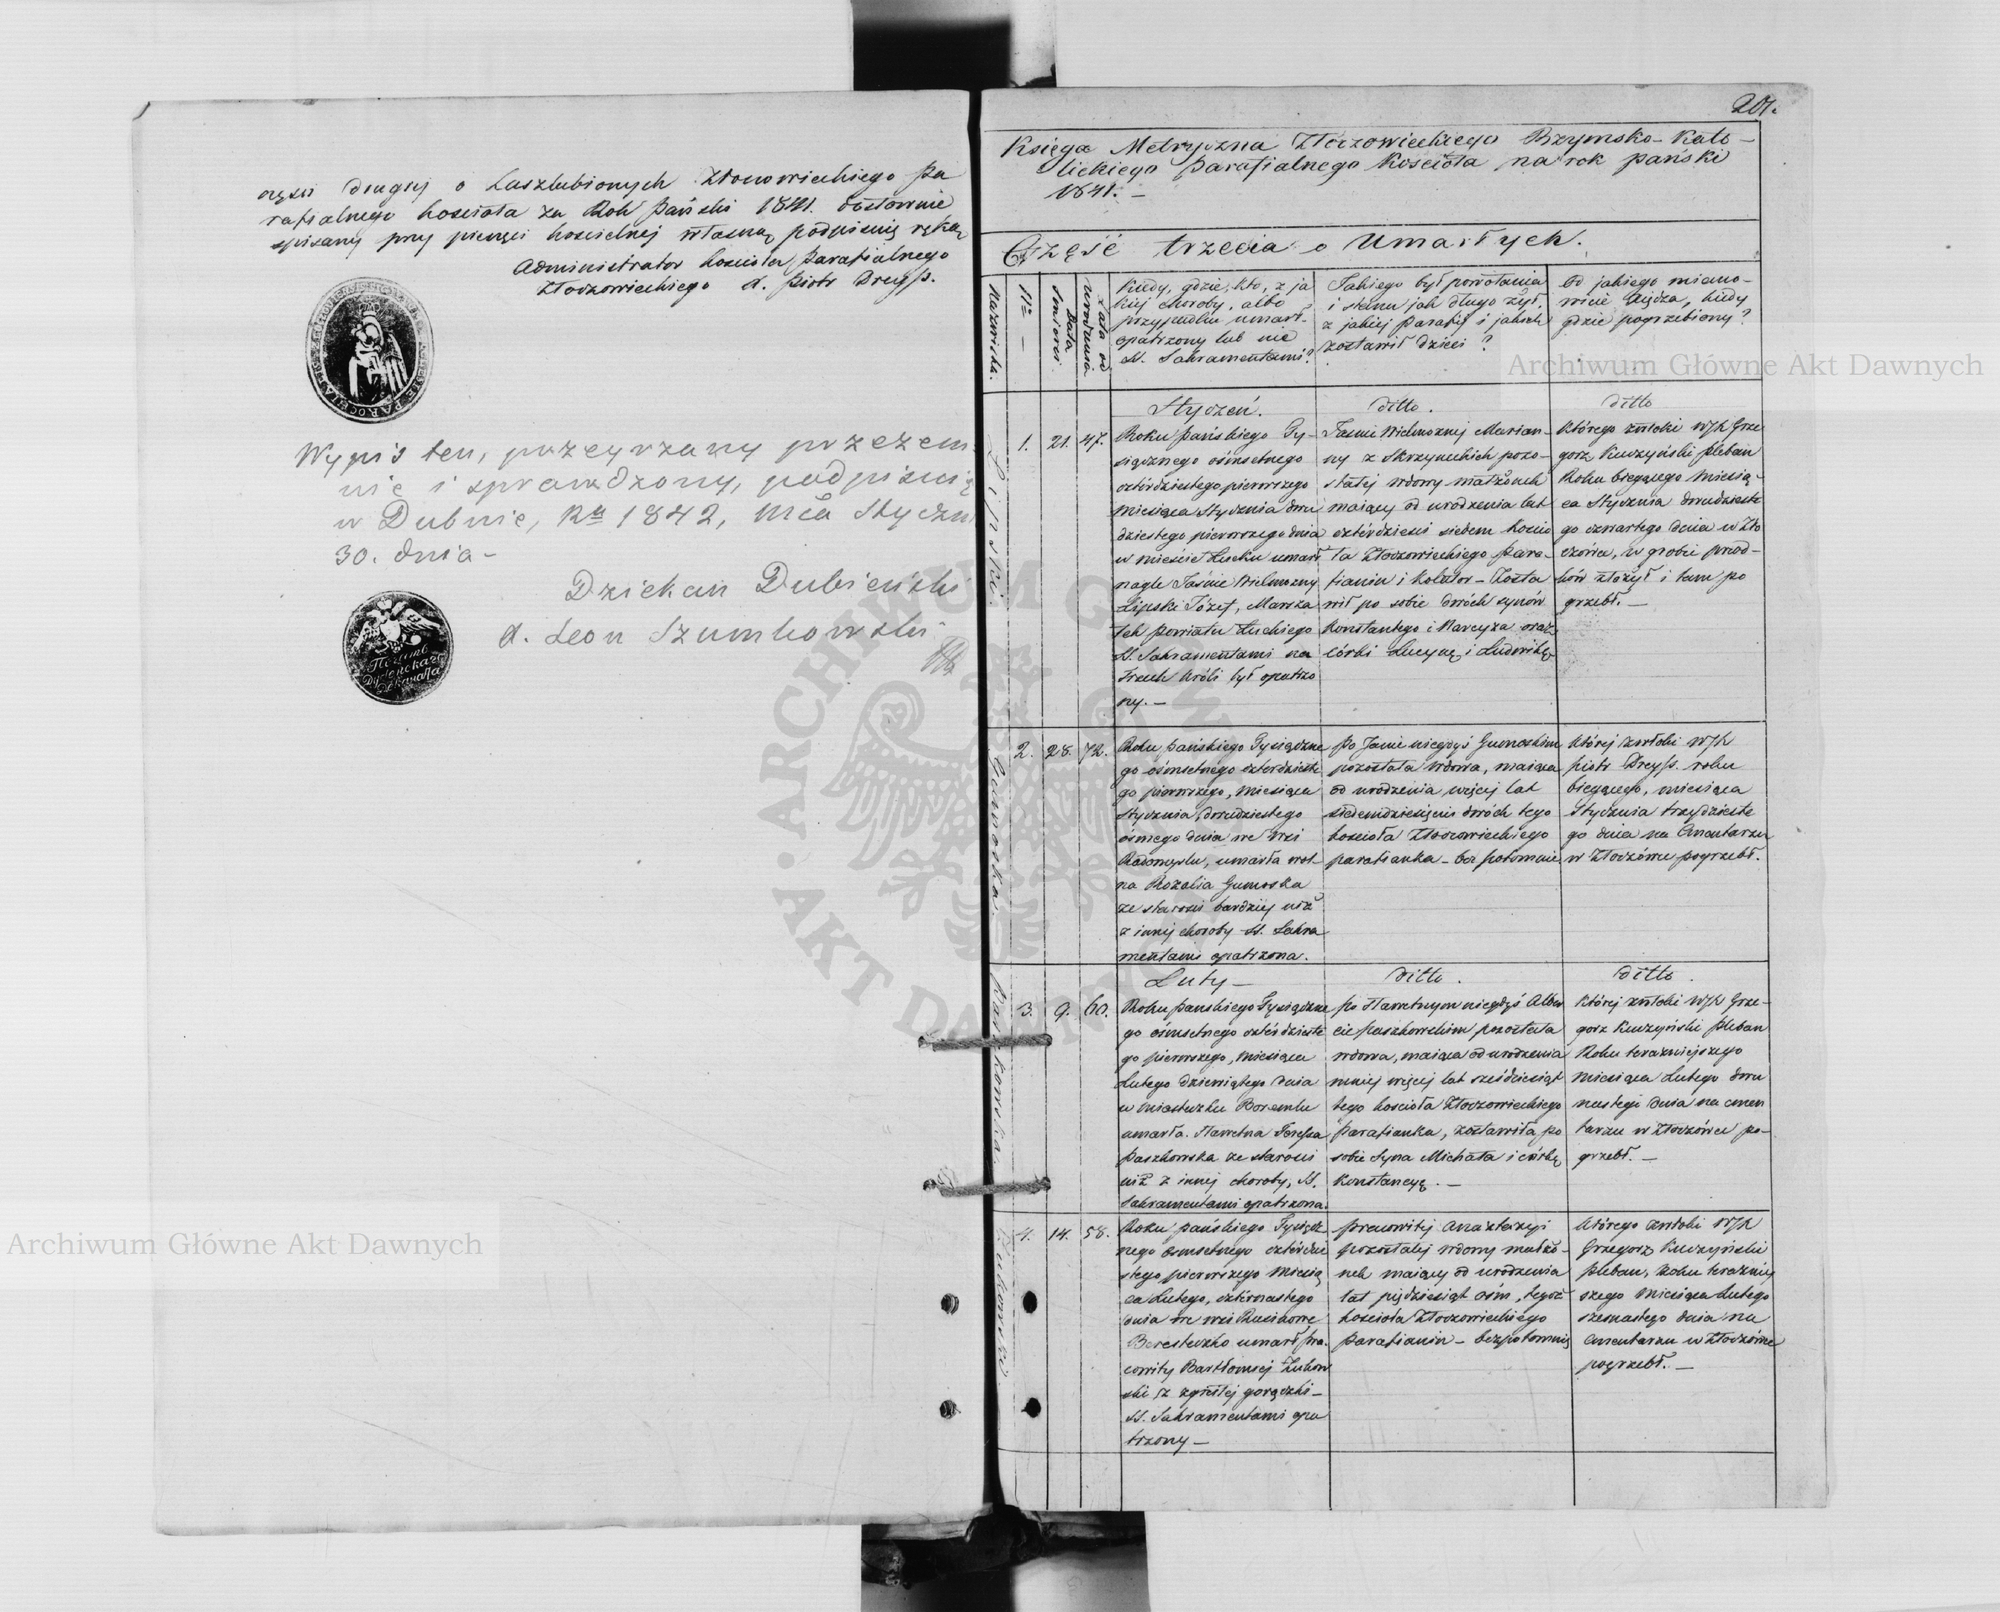 części drugiej o Zaszlubionych Złoczowieckiego Pa
rafialnego kościoła za Rok Pański 1841. dosłownie
spisany przy pieczęci kościelnej własną podpisuię ręką
Administrator kościoła Parafialnego
Złoczowieckiego X. Piotr Dreyß.
Wypis ten, przeyrzany przezem-
nie i sprawdzony, podpisuię
w Dubnie, Ru 1842, Mca Stycznia
30. dnia -
Dziekan Dubieński
X. Leon Szumkowski
Печать
Дубенскаго
Деканата
201.
Księga Metryczna Złoczowieckiego Rzymsko-Kato-
lickiego Parafialnego Kościoła na rok Pański
1841. -
Część trzecia o Umarłych.
Nazwiska.
No -
Data Śmierci
Lata od urodzenia
Kiedy, gdzie, kto, z ja
kiej choroby, albo
przypadku umarł-
opatrzony lub nie
SS. Sakramentami?
Jakiego był powołania
i stanu jak długo żył,
z jakiej Parafij i jakich
zostawił dzieci?
Od jakiego miano-
wicie Xiędza, kiedy
gdzie pogrzebiony?
Lipski.
1.
21.
47.
Styczeń.
Roku Pańskiego Ty-
siącznego ośmsetnego
czterdziestego pierwszego
Miesiąca Stycznia dwu
dziestego pierwszego dnia
w mieście Łucku umarł
nagle Jaśnie Wielmożny
Lipski Józef, Marsza
łek Powiatu Łuckiego
SS. Sakramentami na
Trzech Króli był opatrzo
ny. -
ditto.
Jaśnie Wielmożnej Marian-
ny z Skrzyneckich pozo-
stałej wdowy małżonek
maiący od urodzenia lat
czterdzieści siedem Kościo
ła Złoczowieckiego Para-
fianin i Kolator - Zosta
wił po sobie dwóch synów
Konstantego i Narcyza oraz
Córki Lucynę i Ludwikę
ditto
Którego zwłoki WJX Grze
gorz Kuczyński Pleban
Roku bieżącego Miesią-
ca Stycznia dwudzieste
go czwartego dnia w Zło
czówce, w grobie przod-
ków złożył i tam po
grzebł. -
Gumowska.
2.
28.
72.
Roku Pańskiego Tysiączne
go ośmsetnego czterdzieste
go pierwszego, Miesiąca
Stycznia, dwudziestego
ósmego dnia we wsi
Radomyślu, umarła wol-
na Rozalia Gumoska
ze starości bardziej niż
z innej choroby SS. Sakra
mentami opatrzona.
Po Janie niegdyś Gumoskim
pozostała wdowa, maiąca
od urodzenia więcej lat
siedemdziesięciu dwóch tego
kościoła Złoczowieckiego
parafianka - bez potomnie
Której zwłoki WJX
Piotr Dreyß. roku
bieżącego, miesiąca
Stycznia trzydzieste
go dnia na Cmentarzu
w Złoczówce pogrzebł.
Paszkowska.
3.
9.
60.
Luty -
Roku Pańskiego Tysiączne
go ośmsetnego czterdzieste
go pierwszego, Miesiąca
Lutego dziewiątego dnia
w Miasteczku Boremlu
umarła. Sławetna Teressa
Paszkowska ze starości
niż z innej choroby, SS.
Sakramentami opatrzona.
ditto.
po Sławetnym niegdyś Alber
cie Paszkowskim pozostała
wdowa, maiąca od urodzenia
mniej więcej lat sześćdziesiąt
tego kościoła Złoczowieckiego
Parafianka, zostawiła po
sobie Syna Michała i córkę
Konstancyą. -
ditto.
Której zwłoki WJX Grze-
gorz Kuczyński Pleban
Roku teraźniejszego
Miesiąca Lutego dwu
nastego dnia na cmen
tarzu w Złoczówce po-
grzebł. -
4.
14.
58.
Roku Pańskiego Tysiącz
nego ośmsetnego czterdzie
stego pierwszego Miesią
ca Lutego, czternastego
dnia we wsi
Beresteczko umarł pra-
cowity Bartłomiej Żukow
ski z zgniłej gorączki -
SS. Sakramentami opa
trzony -
pracowitej Anaztazyi
pozostałej wdowy małżo-
nek maiący od urodzenia
lat pięćdziesiąt ośm, tegoż
kościoła Złoczowieckiego
Parafianin - bezpotomnie
Którego zwłoki WJX
Grzegorz Kuczyński
Pleban, Roku teraźniej
szego Miesiąca Lutego
szesnastego dnia na
cmentarzu w Złoczówce
pogrzebł. -
Archiwum Główne Akt Dawnych
Archiwum Główne Akt Dawnych
ARCHIWUM GŁÓWNE AKT DAWNYCH